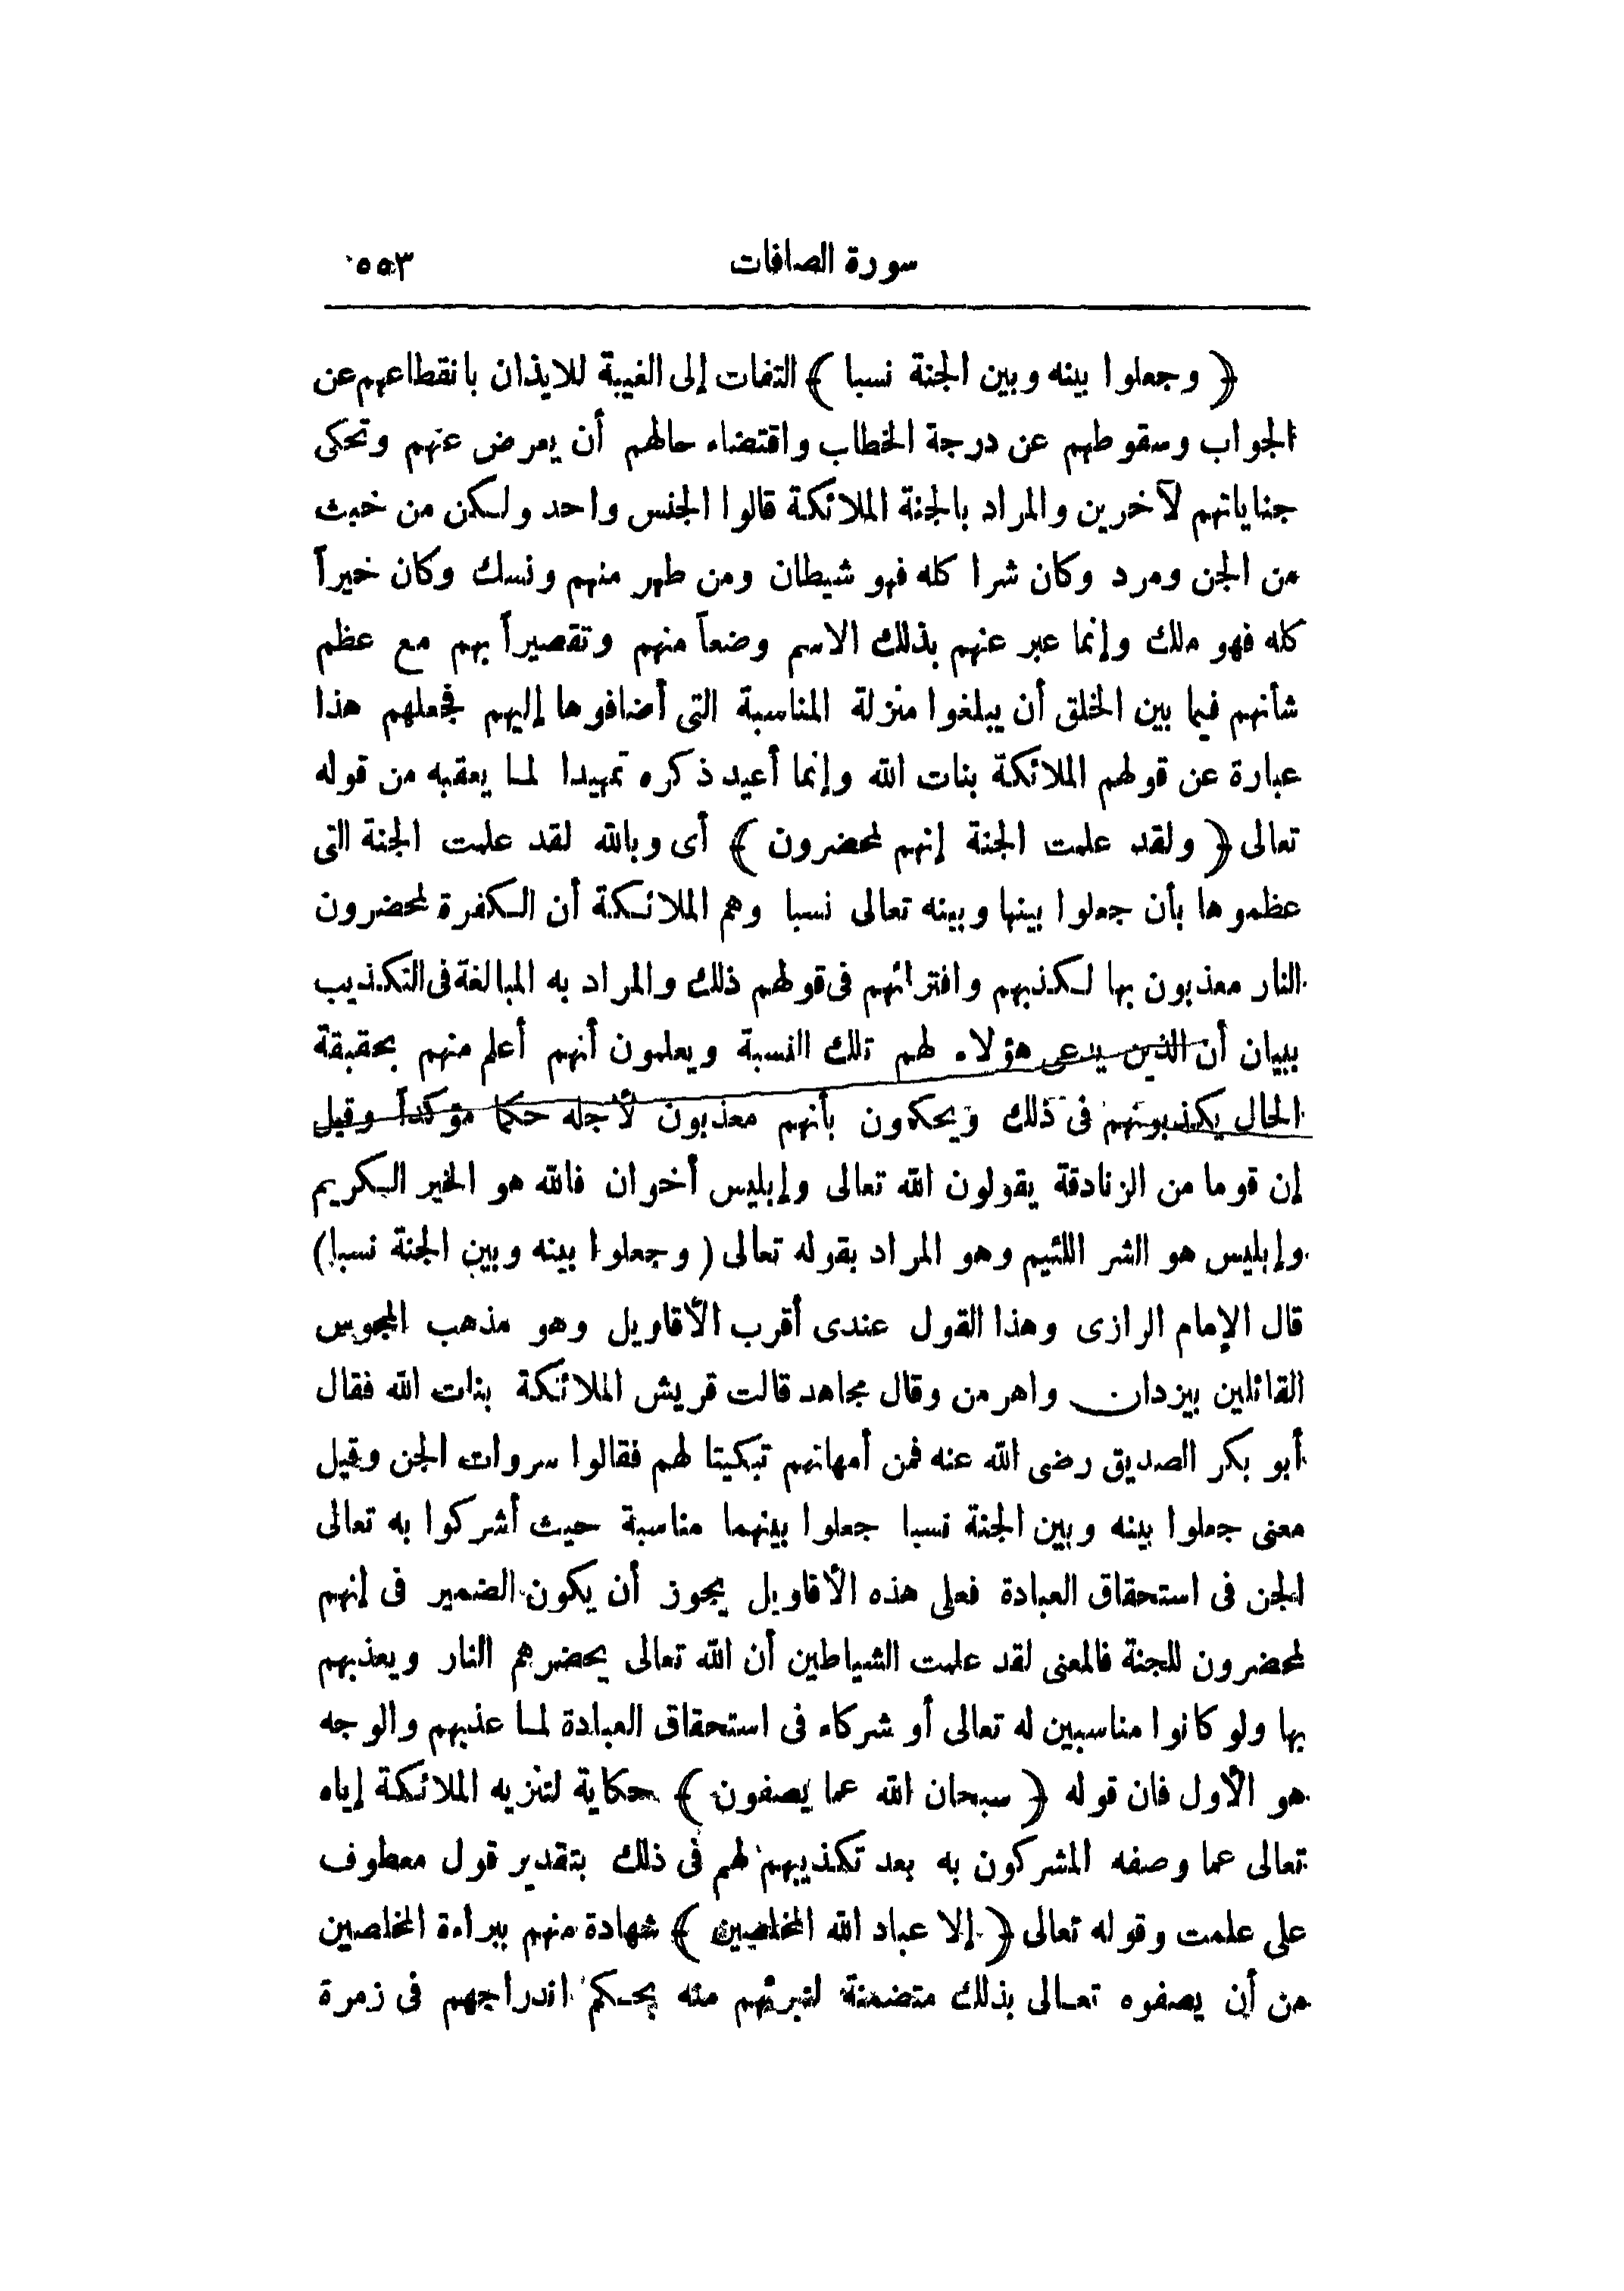 سورة الصافات ٥٥٣
﴿ وجعلوا بينه وبين الجنة نسبا ﴾ التفات إلى الغيبة للايذان بانقطاعهم عن
الجواب وسقوطهم عن درجة الخطاب واقتضاء حالهم أن يعرض عنهم وتحكى
جناياتهم لآخرين والمراد بالجنة الملائكة قالوا الجنس واحد ولكن من خبث
من الجن ومرد وكان شرا كله فهو شيطان ومن طهر منهم ونسك وكان خيراً
كله فهو ملك وإنما عبر عنهم بذلك الاسم وضعاً منهم وتقصيراً بهم مع عظم
شأنهم فيما بين الخلق أن يبلغوا منزلة المناسبة التى أضافوها إليهم فجعلهم هذا
عبارة عن قولهم الملائكة بنات الله وإنما أعيد ذكره تمهيدا لما يعقبه من قوله
تعالى ﴿ ولقد علمت الجنة إنهم لمحضرون ﴾ أى وبالله لقد علمت الجنة التى
عظموها بأن جعلوا بينها وبينه تعالى نسبا وهم الملائكة أن الكفرة لمحضرون
النار معذبون بها لكذبهم وافترائهم فى قولهم ذلك والمراد به المبالغة فى التكذيب
ببيان أن الذين يدعى هؤلاء لهم تلك النسبة ويعلمون أنهم أعلم منهم بحقيقة
الحال يكذبونهم فى ذلك ويحكمون بأنهم معذبون لأجله حكما مؤكداً وقيل
إن قوما من الزنادقة يقولون الله تعالى وإبليس أخوان فالله هو الخير الكريم
وإبليس هو الشر اللئيم وهو المراد بقوله تعالى ( وجعلوا بينه وبين الجنة نسبا)
قال الإمام الرازى وهذا القول عندى أقرب الأقاويل وهو مذهب المجوس
القائلين بيزدان واهرمن وقال مجاهد قالت قريش الملائكة بنات الله فقال
أبو بكر الصديق رضى الله عنه فمن أمهاتهم تبكيتا لهم فقالوا سروات الجن وقيل
معنى جعلوا بينه وبين الجنة نسبا جعلوا بينهما مناسبة حيث أشركوا به تعالى
الجن فى استحقاق العبادة فعلى هذه الأقاويل يجوز أن يكون الضمير فى إنهم
لمحضرون للجنة فالمعنى لقد علمت الشياطين أن الله تعالى يحضرهم النار ويعذبهم
بها ولو كانوا مناسبين له تعالى أو شركاء فى استحقاق العبادة لما عذبهم والوجه
هو الأول فان قوله ﴿ سبحان الله عما يصفون ﴾ حكاية لتنزيه الملائكة إياه
تعالى عما وصفه المشركون به بعد تكذيبهم لهم فى ذلك بتقدير قول معطوف
على علمت وقوله تعالى ﴿ إلا عباد الله المخلصين ﴾ شهادة منهم ببراءة المخلصين
من أن يصفوه تعالى بذلك متضمنة لتبرئهم منه بحكم اندراجهم فى زمرة